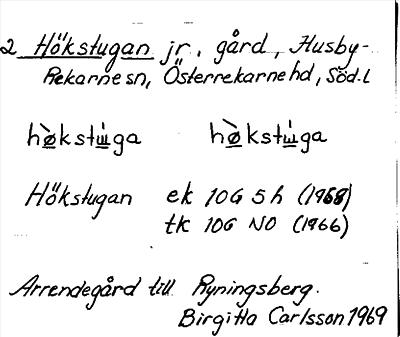 2 Hökstugan jr, gård, Husby-
Rekarne sn, Österrekarne hd, Söd. l
Hökstugan ek 10G 5h (1958)
tk 10G NO (1966)
Arrendegård till Ryningsberg.
Birgitta Carlsson 1969